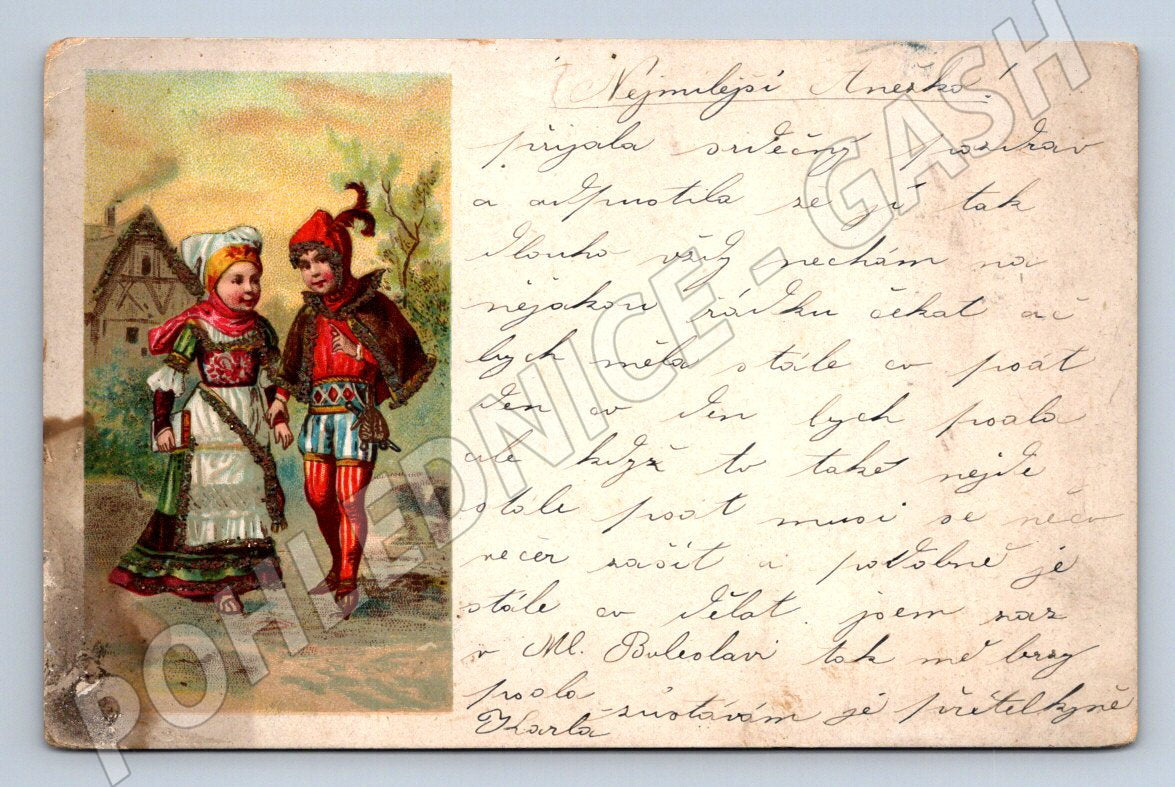 Nejmilejší Anežko!
přijala srdečný pozdrav
a odpustila že jí tak
dlouho vždy nechám na
nějakou řádku čekat ač
bych měla stále co psát
den co den bych psala
ale když to také nejde
stále psát musí se něco
večer zašít a podobně je
stále co dělat. jsem zas
v Ml. Boleslavi tak mě brzy
psala
zůstávám její přítelkyně
Karla
POHLEDNICE - GASH